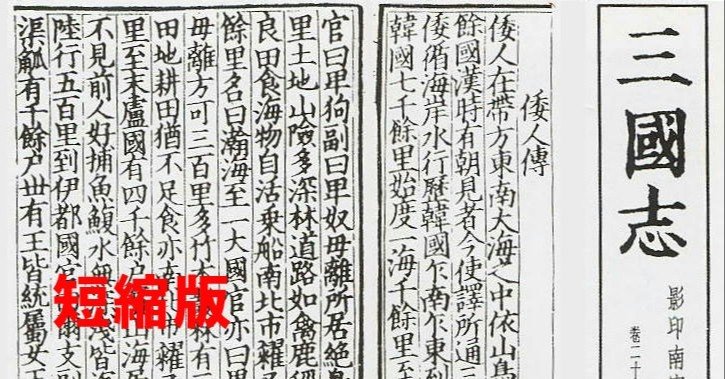 三國志
影印南
卷二十
倭人傳
倭人在帶方東南大海之中依山島
餘國漢時有朝見者今使譯所通三
倭循海岸水行歷韓國乍南乍東到
韓國七千餘里始度一海千餘里至
官曰卑狗副曰卑奴毋離所居絕島
里土地山險多深林道路如禽鹿徑
良田食海物自活乗船南北市糴
餘里名曰瀚海至一大國官亦曰卑
毋離方可三百里多竹木林有三
田地耕田猶不足食亦南北市糴
里至末盧國有四千餘戶山海居
不見前人好捕魚鰒水無淺皆
陸行五百里到伊都國官爾支副
渠觚有千餘戶世有王皆統屬女王
短縮版